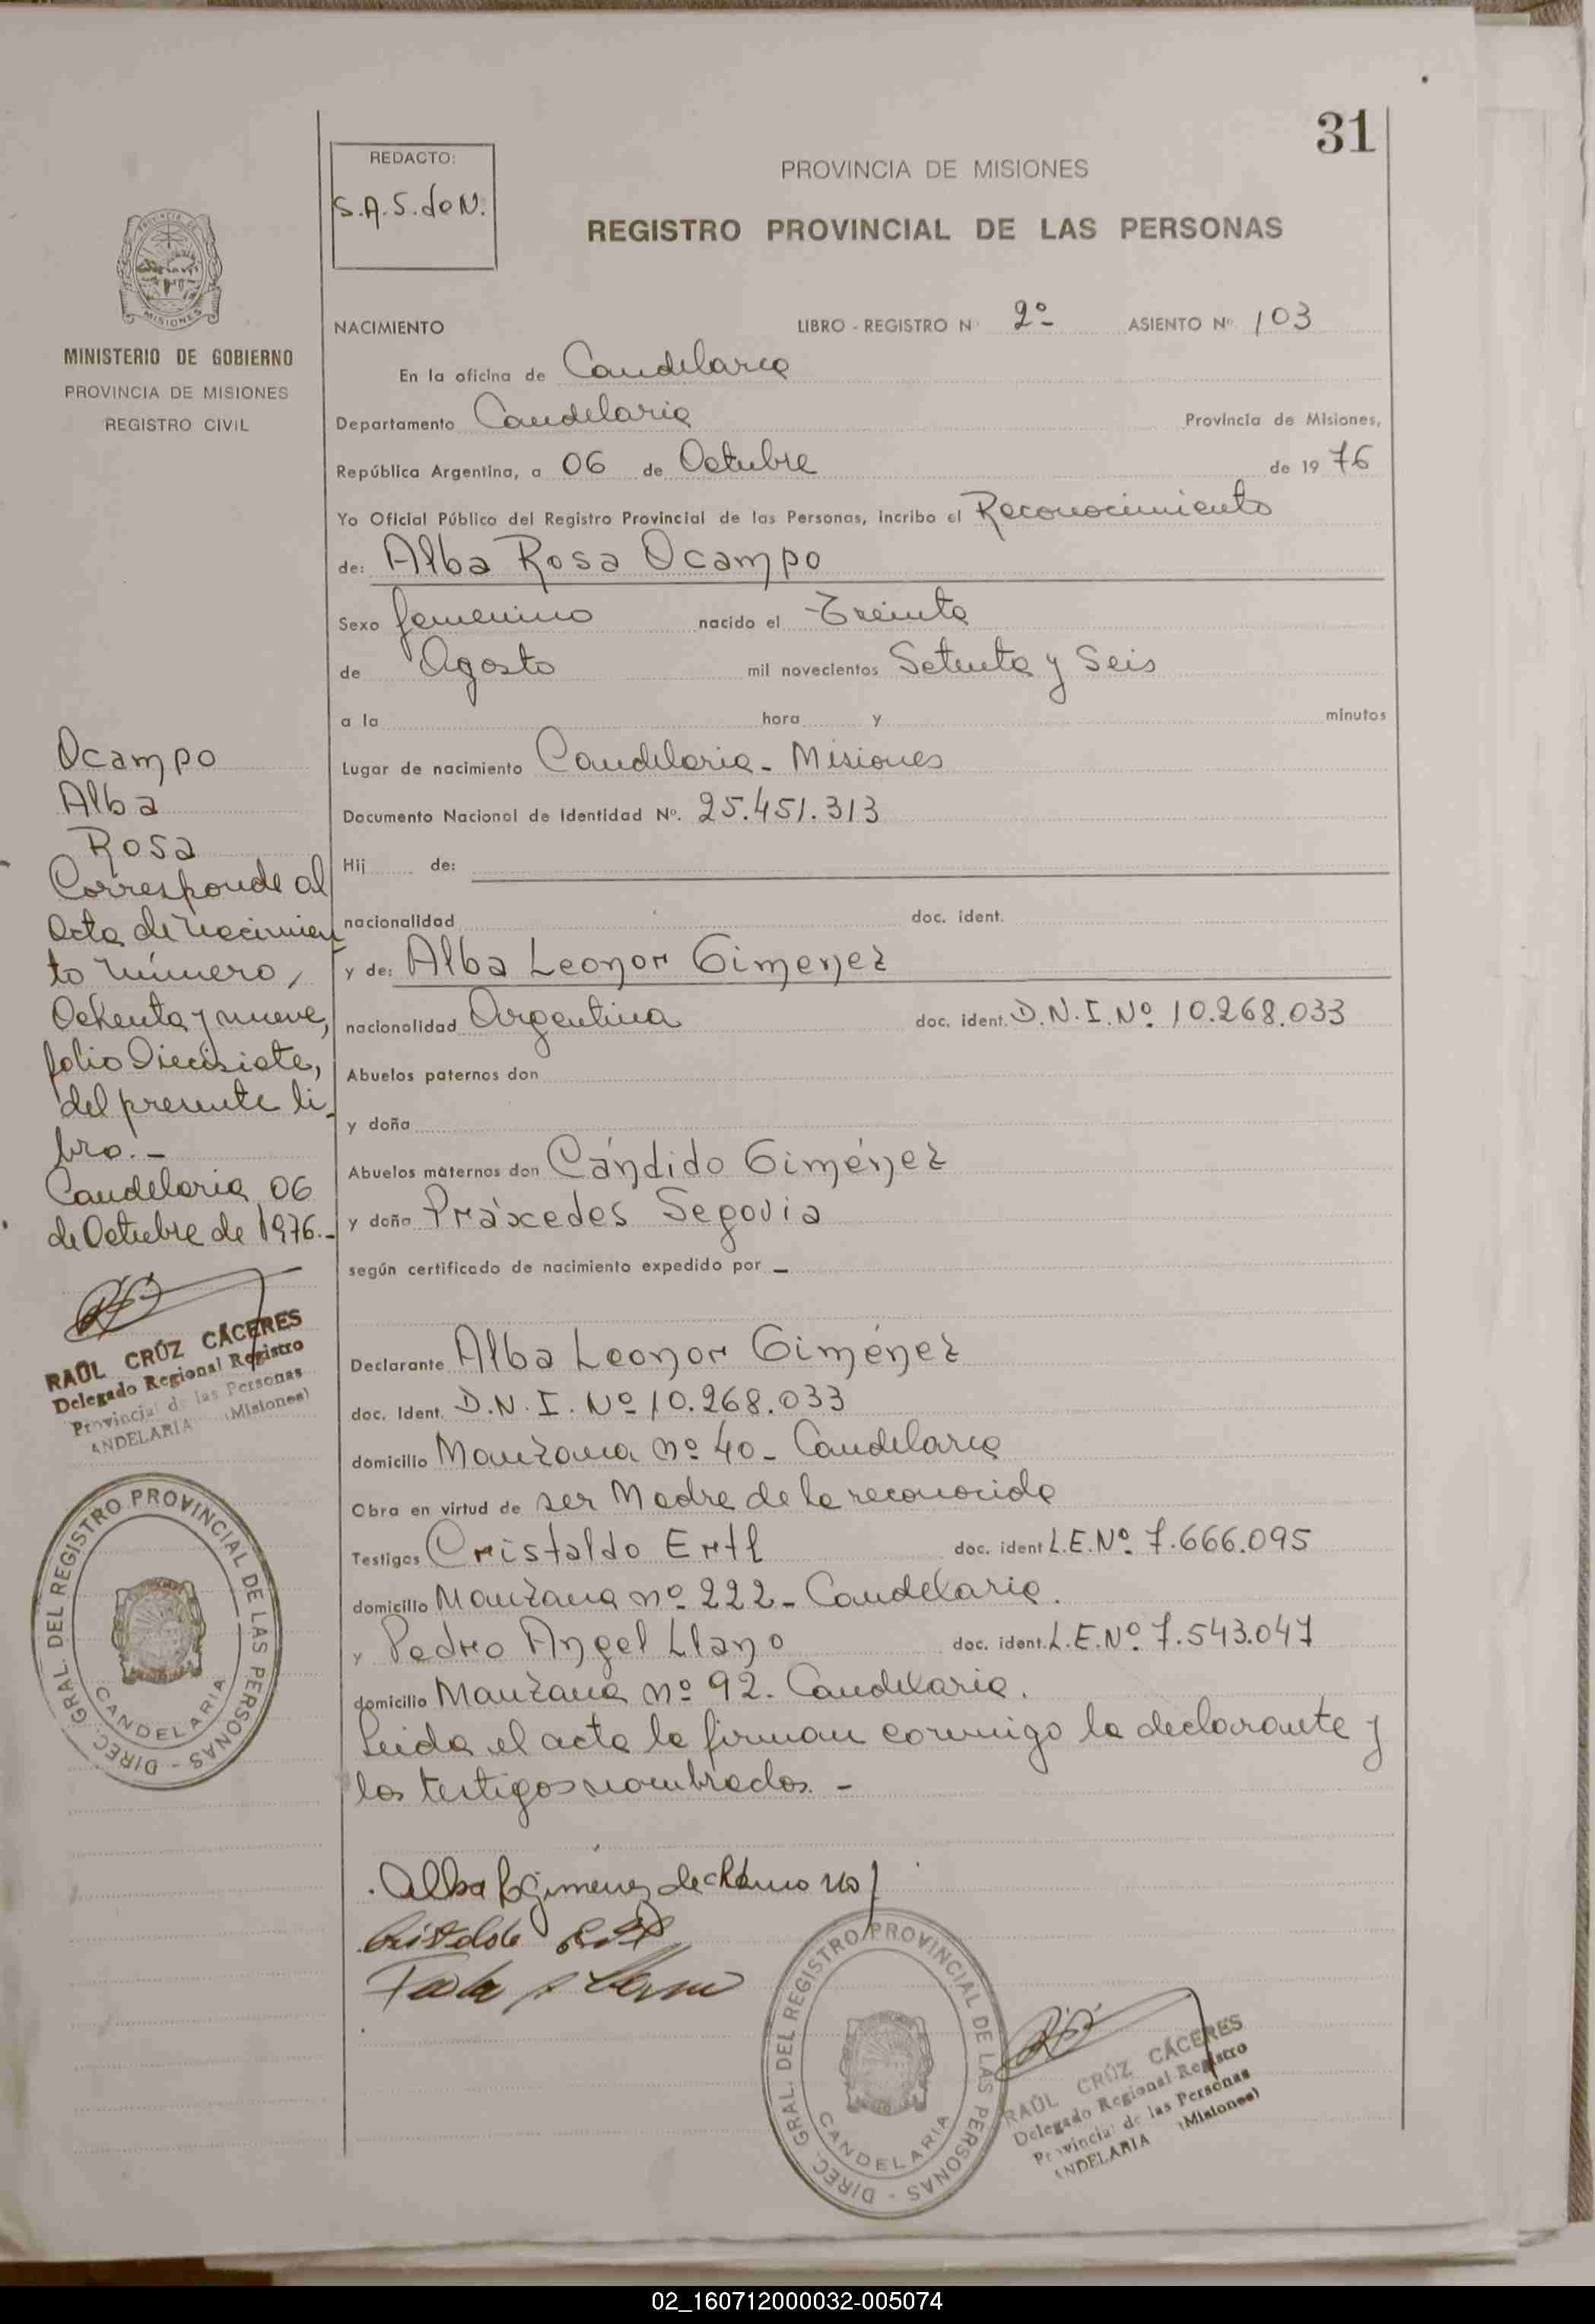 31
REDACTO:
S.A.S. de N.
PROVINCIA DE MISIONES
REGISTRO PROVINCIAL DE LAS PERSONAS
MINISTERIO DE GOBIERNO
PROVINCIA DE MISIONES
REGISTRO CIVIL
NACIMIENTO LIBRO - REGISTRO N° 2º ASIENTO Nº 103
En la oficina de Candelaria
Departamento Candelaria Provincia de Misiones,
República Argentina, a 06 de Octubre de 19 76
Yo Oficial Público del Registro Provincial de las Personas, incribo el Reconocimiento
de: Alba Rosa Ocampo
Sexo femenino nacido el Treinta
de Agosto mil novecientos Setenta y Seis
a la hora y minutos
Lugar de nacimiento Candelaria - Misiones
Documento Nacional de Identidad Nº. 25.451.313
Hij de:
nacionalidad doc. ident.
y de: Alba Leonor Gimenez
nacionalidad Argentina doc. ident. D.N.I. Nº 10.268.033
Abuelos paternos don
y doña
Abuelos maternos don Cándido Giménez
y doña Práxcedes Segovia
según certificado de nacimiento expedido por -
Declarante Alba Leonor Giménez
doc. Ident. D.N.I. Nº 10.268.033
domicilio Manzana nº 40 - Candelaria
Obra en virtud de ser Madre de la reconocida
Testigos Cristaldo Ertl doc. ident L.E. Nº. 7.666.095
domicilio Manzana nº 222 - Candelaria.
y Pedro Angel Llano doc. ident. L.E. Nº. 7.543.047
domicilio Manzana nº 92. Candelaria.
Leida el acta la firman conmigo la declarante y
los testigos nombrados. -
Ocampo
Alba
Rosa
Corresponde al
Acta de Nacimien
to número,
Ochenta y nueve,
folio Diecisiete,
del presente li-
bro. -
Candelaria 06
de Octubre de 1976.-
RAÚL CRÚZ CÁCERES
Delegado Regional Registro
Provincial de las Personas
ANDELARIA (Misiones)
DIREC. GRAL. DEL REGISTRO PROVINCIAL DE LAS PERSONAS -
CANDELARIA
Alba L Gimenez de
Cristaldo Ertl
DIREC. GRAL. DEL REGISTRO PROVINCIAL DE LAS PERSONAS -
CANDELARIA
RAÚL CRÚZ CÁCERES
Delegado Regional Registro
Provincial de las Personas
ANDELARIA (Misiones)
02_160712000032-005074